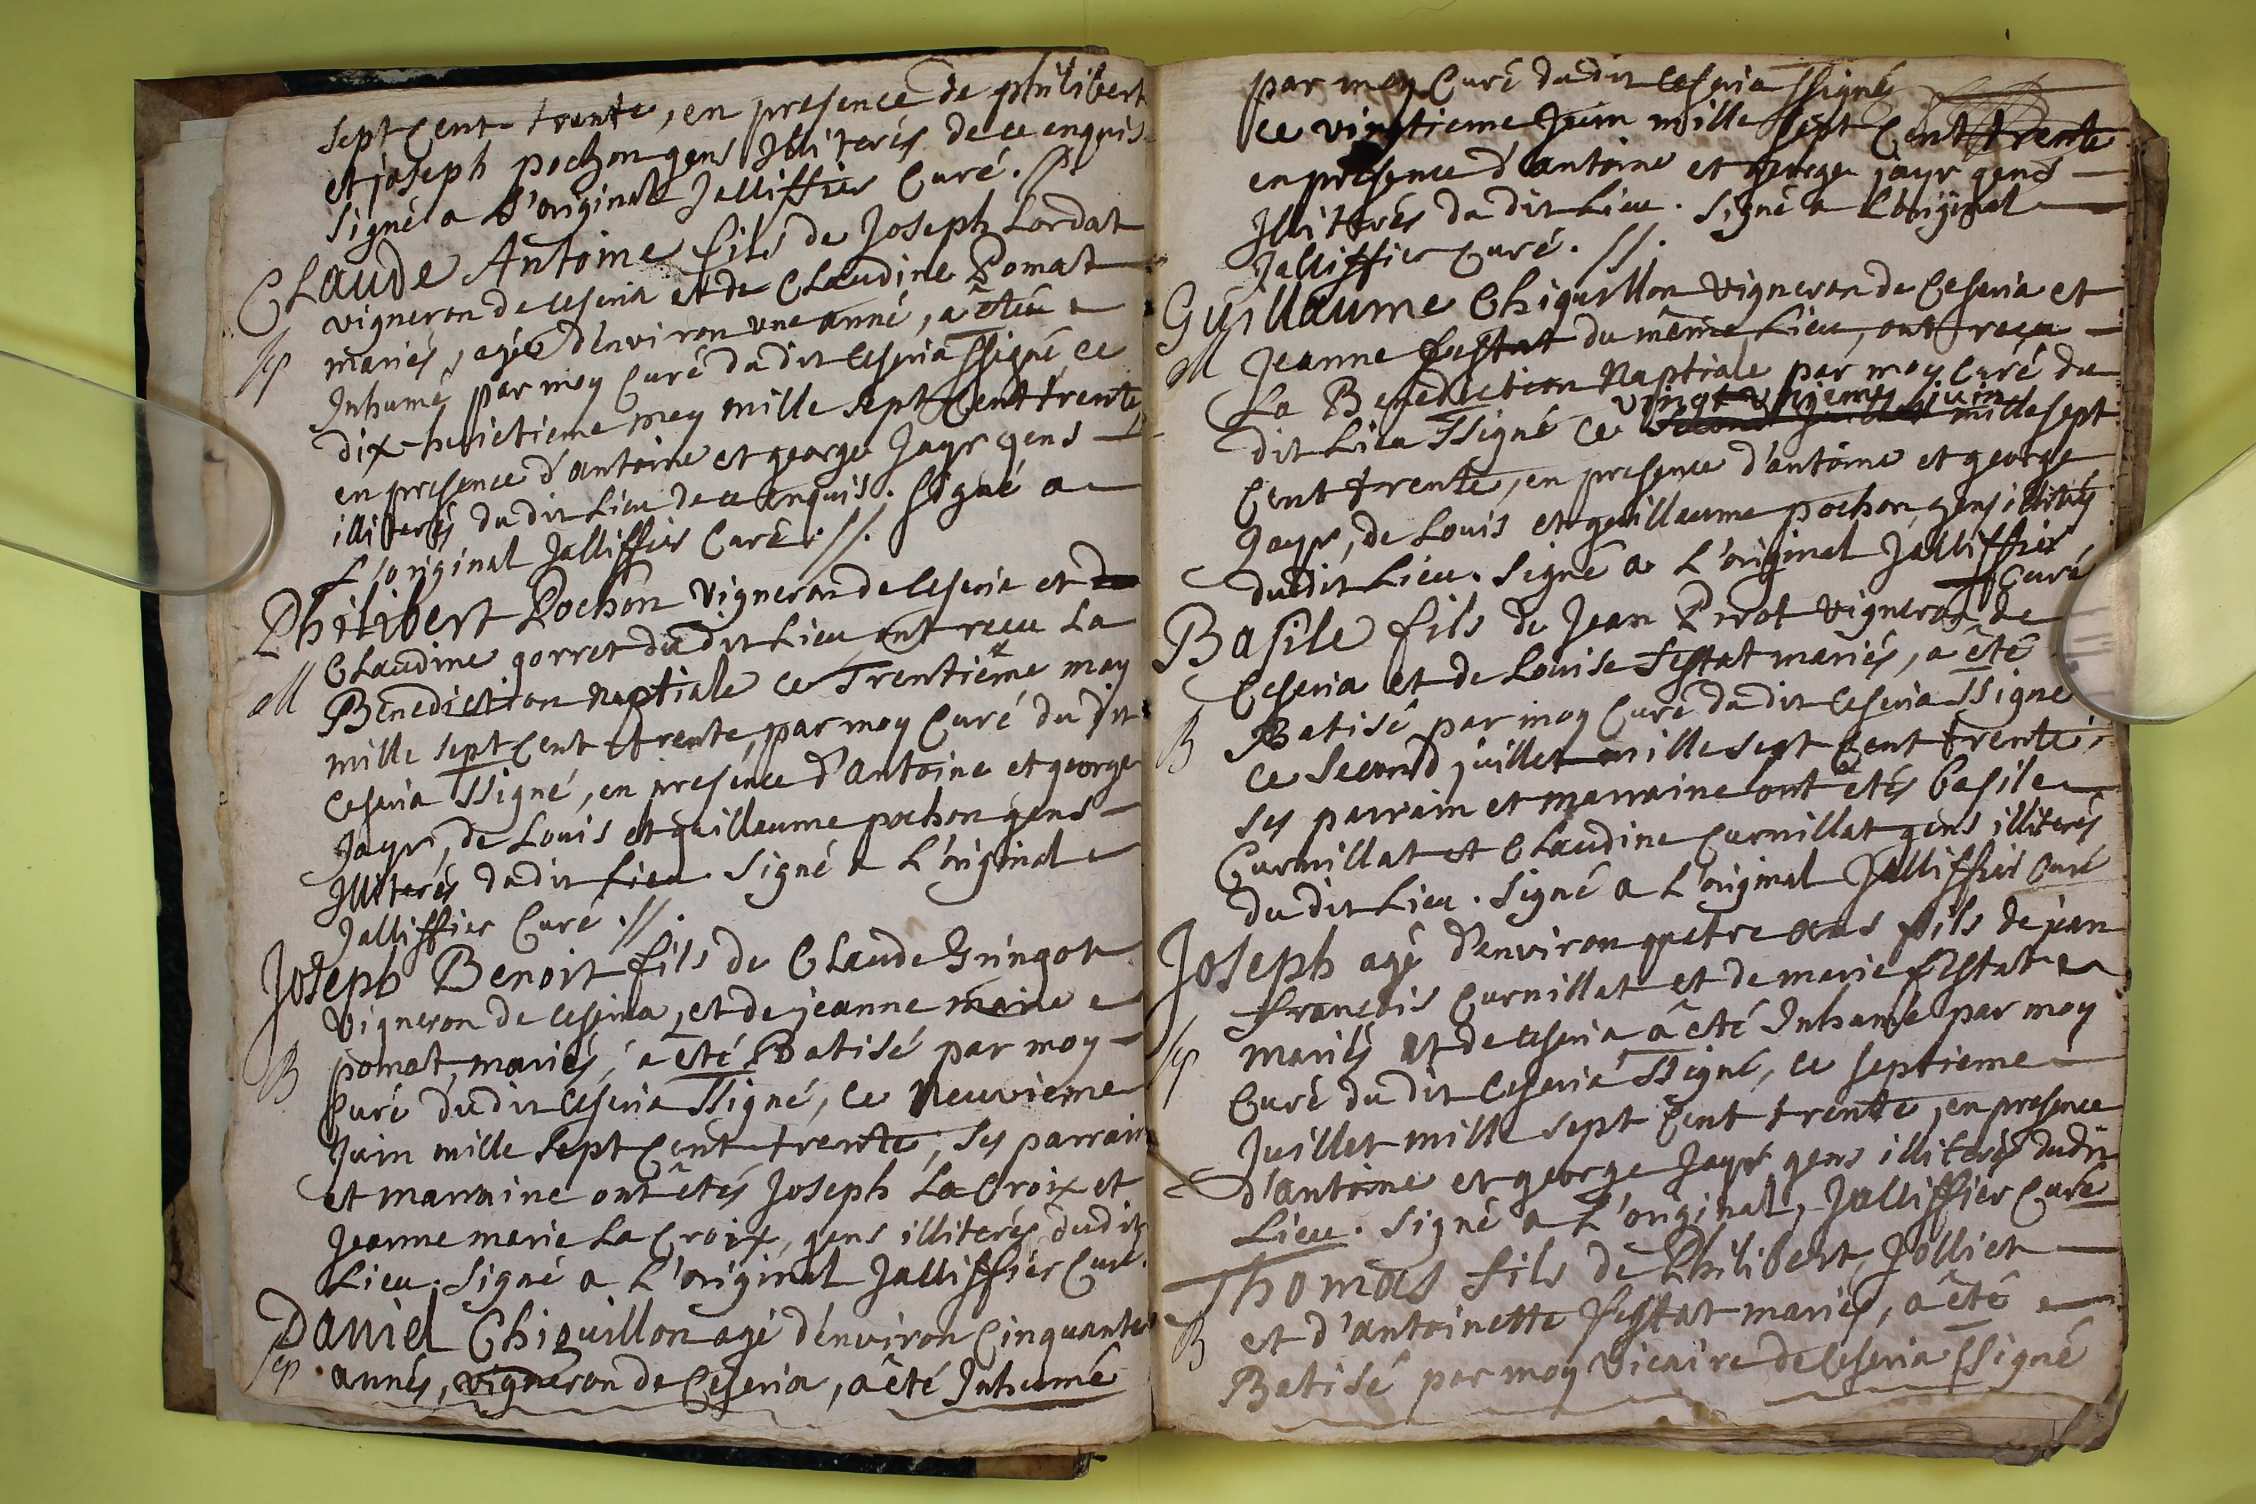 sept cent trente, en presence de philibert
et joseph pochon gens Illiterés de ce enquis.
signé a L'original Jalliffier Curé. //.
CLaude Antoine fils de Joseph Lordat
vigneron de Ceseria et de CLaudine Pomat
Sep mariés, agée d'environ une anné, a êteu
Inhumé par moy Curé du dit Ceseria ssigné, ce
dix-huictieme may mille sept Cent trente,
en presence d'antoine et george Jayr gens
illiterés du dit Lieu de ce enquis. signé a
L'original Jalliffier Curé. //.
Philibert Pochon vigneron de Ceseria et
CLaudine gorret du dit Lieu ont receu La
M Benediction nuptiale ce Trentieme may
mille sept Cent trente, par moy Curé du dit
Ceseria ssigné, en presence d'Antoine et george
Jayr, de Louis et guillaume pochon gens
Illiterés du dit Lieu. signé a L'original
Jalliffier Curé. //.
Joseph Benoit fils de CLaude Gringot
vigneron de Ceseria, et de jeanne marie
B pomat, mariés, a êté Batisé par moy
Curé du dit Ceseria ssigné, ce Neuvieme
Juin mille sept Cent trente, ses parrain
et marraine ont êtés Joseph La Croix et
Jeanne marie La Croix, gens illiterés du dit
Lieu. signé a L'original Jalliffier Curé.
Daniel Chiquillon agé d'environ Cinquante
Sep annés, vigneron de Ceseria, a êté Inhumé
par moy Curé du dit Ceseria ssigné
ce vingtieme Juin mille sept Cent trente
en presence d'antoine et george jayr gens
Illitterés du dit Lieu. signé a L'original
Jalliffier Curé. //.
Guillaume Chiquillon vigneron de Ceseria et
M Jeanne festat du même Lieu, ont receu
La Benediction Nuptiale par moy Curé du
vingt unieme juin
dit Lieu ssigné ce second juillet mille sept
Cent trente, en presence d'antoine et george
Jayr, de Louis et guillaume pochon, gens illiterés
du dit Lieu. signé a L'original Jalliffier
Curé
Basile fils de Jean Pirot vigneron de
Ceseria et de Louise festat mariés, a êté
B Batisé par moy Curé du dit Ceseria ssigné
ce second juillet mille sept Cent trente,
ses parrain et marraine ont êtés basile
Curnillat et CLaudine Curnillat gens illiterés
du dit Lieu. signé a L'original Jalliffier Curé
Joseph agé d'environ quatre ans fils de jean
francois Curnillat et de marie festat
Sep mariés et de Ceseria a êté Inhumé par moy
Curé du dit Ceseria ssigné, ce septieme
Juillet mille sept Cent trente, en presence
d'antoine et george Jayr gens illiterés dudit
Lieu. signé a L'original, Jalliffier Curé
Thomas fils de Philibert Jolliet
B et d'antoinette festat mariés, a êté
Batisé par moy vicaire de Ceseria ssigné